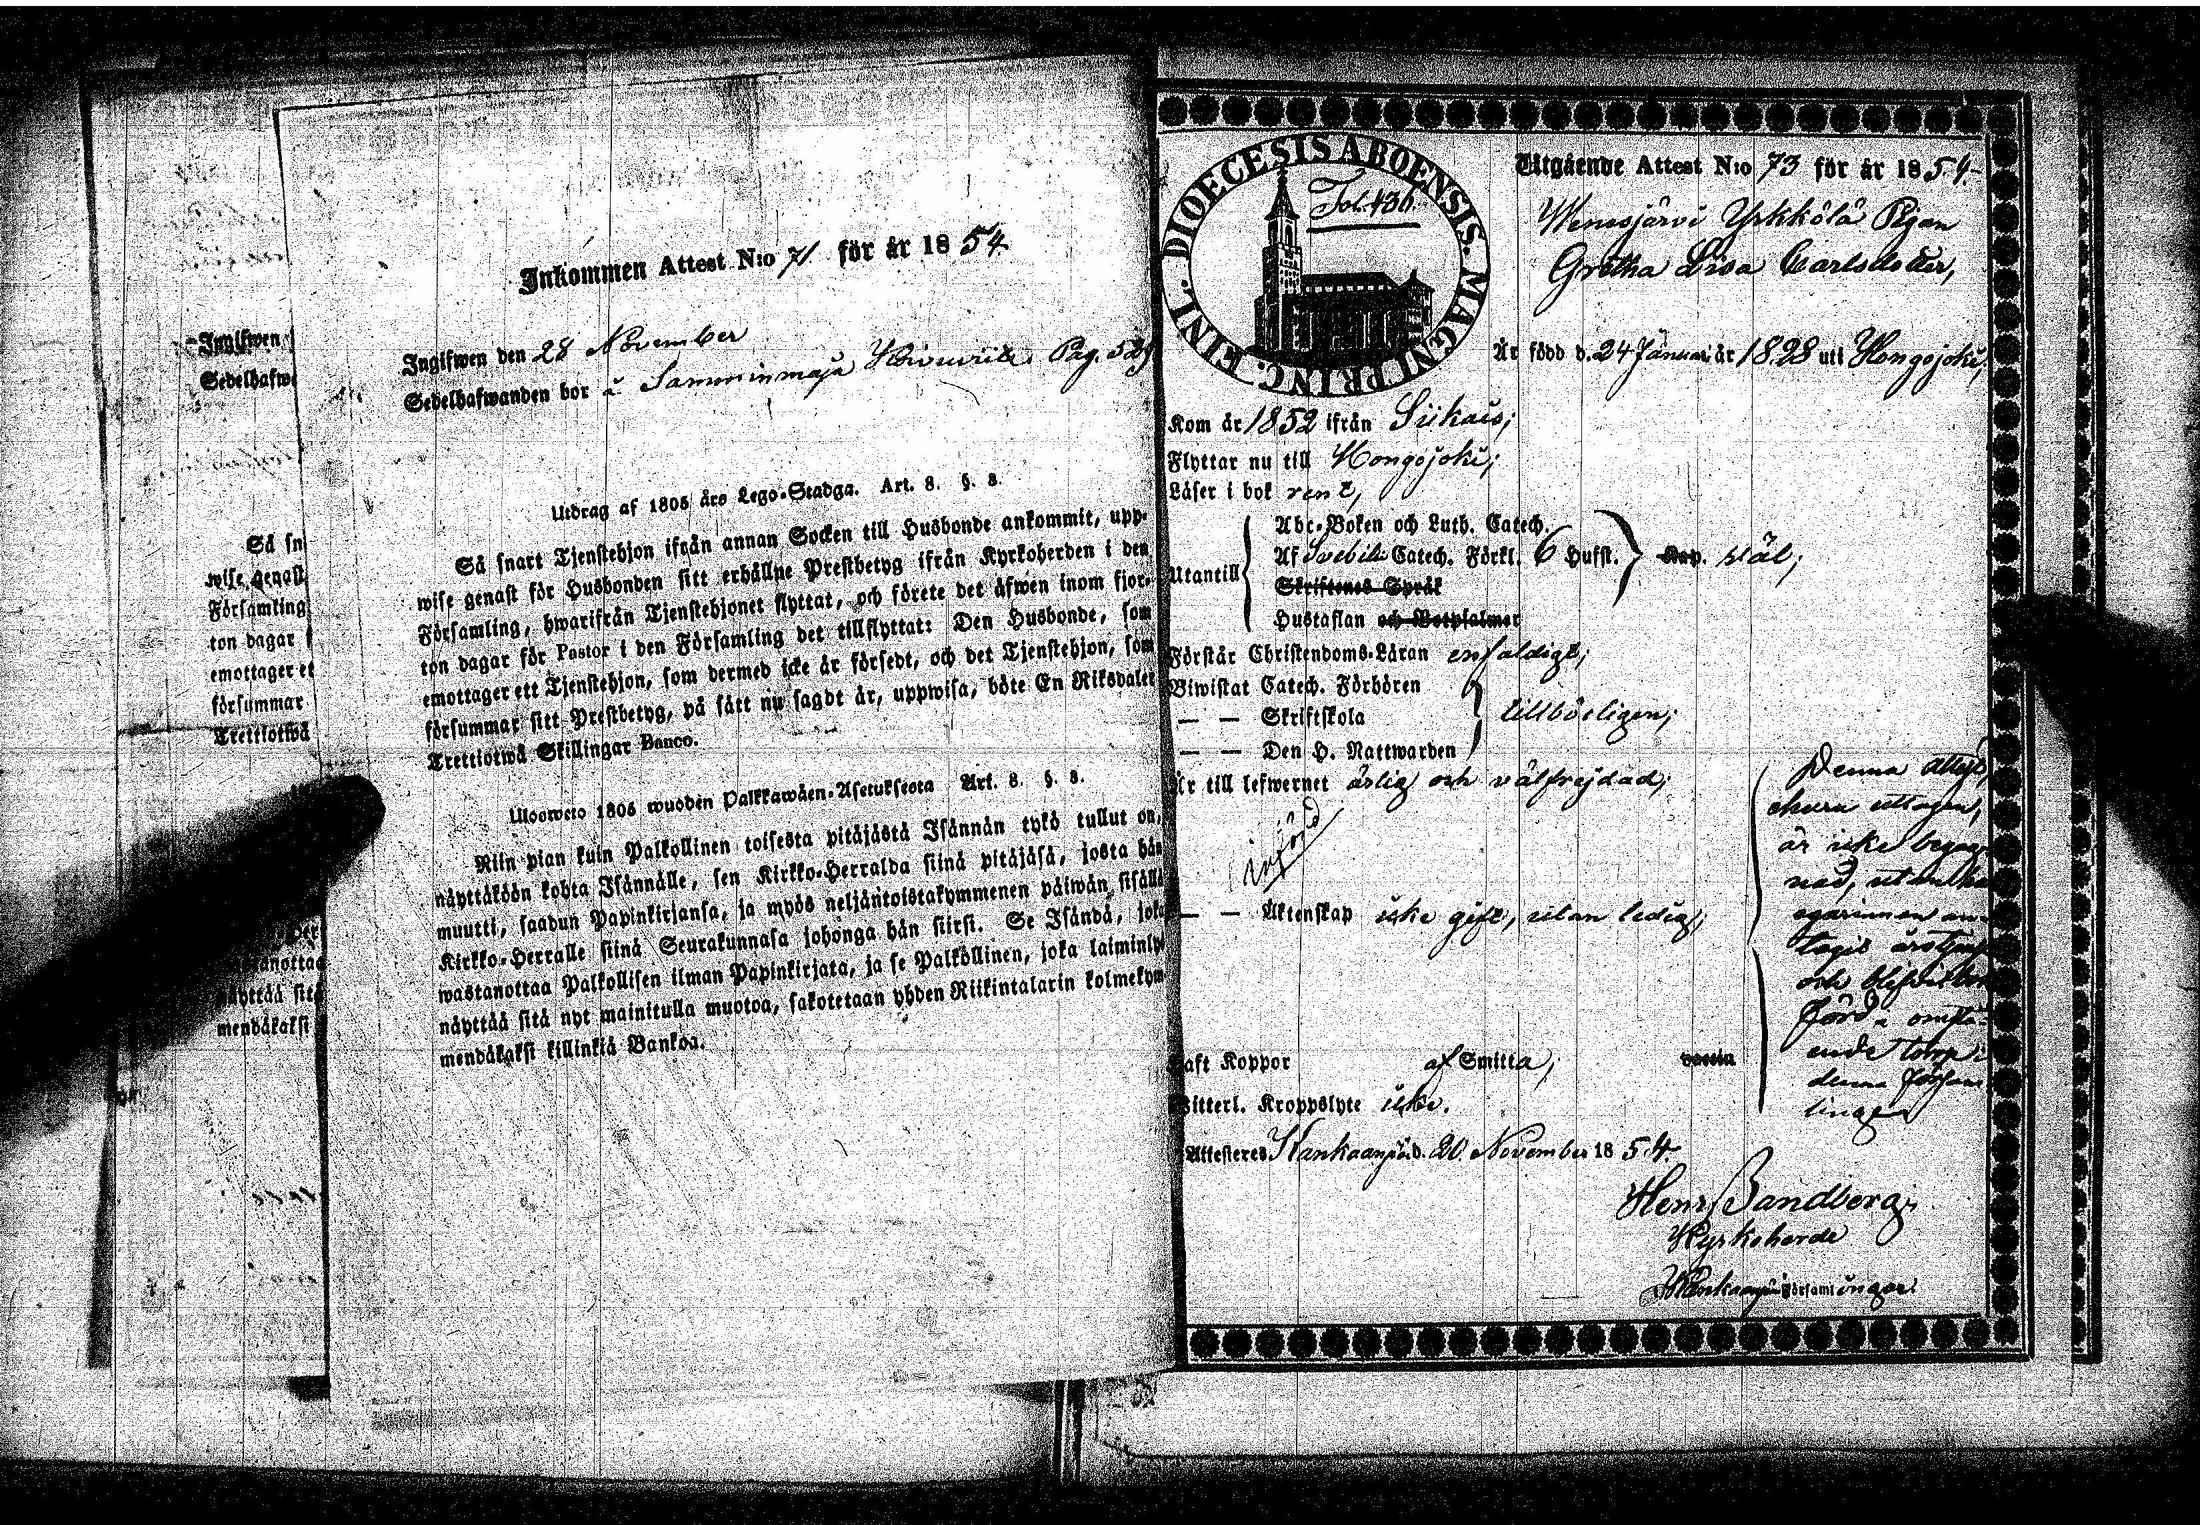 Inkommen Attest N:o 71 för år 1854.
Ingifwen den 28 November
Sedelhafwanden bor i Samminmaja Pag. 529
Utdrag af 1805 års Lego-Stadga. Art. 8. §. 8.
Så snart Tjenstehjon ifrån annan Socken till Husbonde ankommit, upp-
wise genast för Husbonden sitt erhållne Prestbetyg ifrån Kyrkoherden i den
Församling, hwarifrån Tjenstehjonet flyttat, och förete det äfwen inom fjor-
ton dagar för Pastor i den Församling det tillflyttat: Den Husbonde, som
emottager ett Tjenstehjon, som dermed icke är försedt, och det Tjenstehjon, som
försummar sitt Prestbetyg, på sätt nu sagdt är, uppwisa, böte En Riksdaler
Trettiotwå Skillingar Banco.
Ulosweto 1805 wuoden Palkkawäen-Asetuksesta Art. 8. §. 8.
Niin pian kuin Palkollinen toisesta pitäjästä Isännän tykö tullut on,
näyttäköön kohta Isännälle, sen Kirkko-Herralda siinä pitäjäsä, josta hän
muutti, saadun Papinkirjansa, ja myös neljäntoistakymmenen päiwän sisällä
Kirkko-Herralle siinä Seurakunnasa johonga hän siirsi. Se Isändä, joka
wastanottaa Palkollisen ilman Papinkirjata, ja se Palkollinen, joka laiminly
näyttää sitä nyt mainitulla muotoa, sakotetaan yhden Riikintalarin kolmekym-
mendäkaksi killinkiä Bankoa.
Ingifwen
Sedelhafwa
Så sn
wise genast
Församling
ton dagar
emottager et
försummar
Trettiotwå
anottaa
näyttää sitä
mendäkaksi
DIOECESIS ABOENSIS. MAGNI PRINC. FINL.
Fol. 436.
Utgående Attest N:o 73 för år 1854.
Wenesjärvi Yrkkölä Pigan
Gretha Lisa Carlsdoter,
Är född d. 24 Januari år 1828 uti Hongojoki,
Kom år 1852 ifrån Siikais;
Flyttar nu till Hongojoki;
Läser i bok rent,
Utantill
Abc-Boken och Luth. Catech.
Af Svebilii Catech. Förkl. 6 Hufst.
Skriftenes Språk
Hustaflan och Botpsalmer
Kap. släl;
Förstår Christendoms-Läran enfaldigt;
Biwistat Catech. Förhören
— — Skriftskola
— — Den H. Nattwarden
tillbörligen;
Är till lefwernet ärlig och välfrejdad;
införd
— — Äktenskap icke gift, utan ledig;
Denna attest,
ehuru uttagen,
är icke begag-
nad, utan ha
egarinnan an-
tagit årstjenst
och blifvit in-
förd å omstå-
ende torp i
denna försam
lingen
Haft Koppor af Smitta; vaccin
Witterl. Kroppslyte icke.
Attesteres Kankaanpää d. 20. November 1854.
Henr. Sandberg,
Kyrkoherde
Kankaanpää Församlingar.